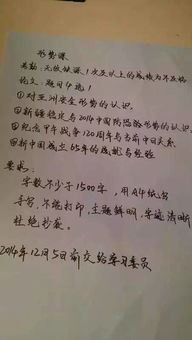 形势课
考勤：无故缺课1次及以上的成绩为不及格
论文：题目(4选1
①对亚洲安全形势的认识.
②新疆稳定与2014中国防恐形势的认识.
③纪念甲午战争120周年与当前中日关系
④新中国成立65年的成就与经验
要求：
字数不少于1500字，用A4纸书
写，不能打印，主题鲜明，字迹清晰
杜绝抄袭。
2014年12月5日前交给学习委员